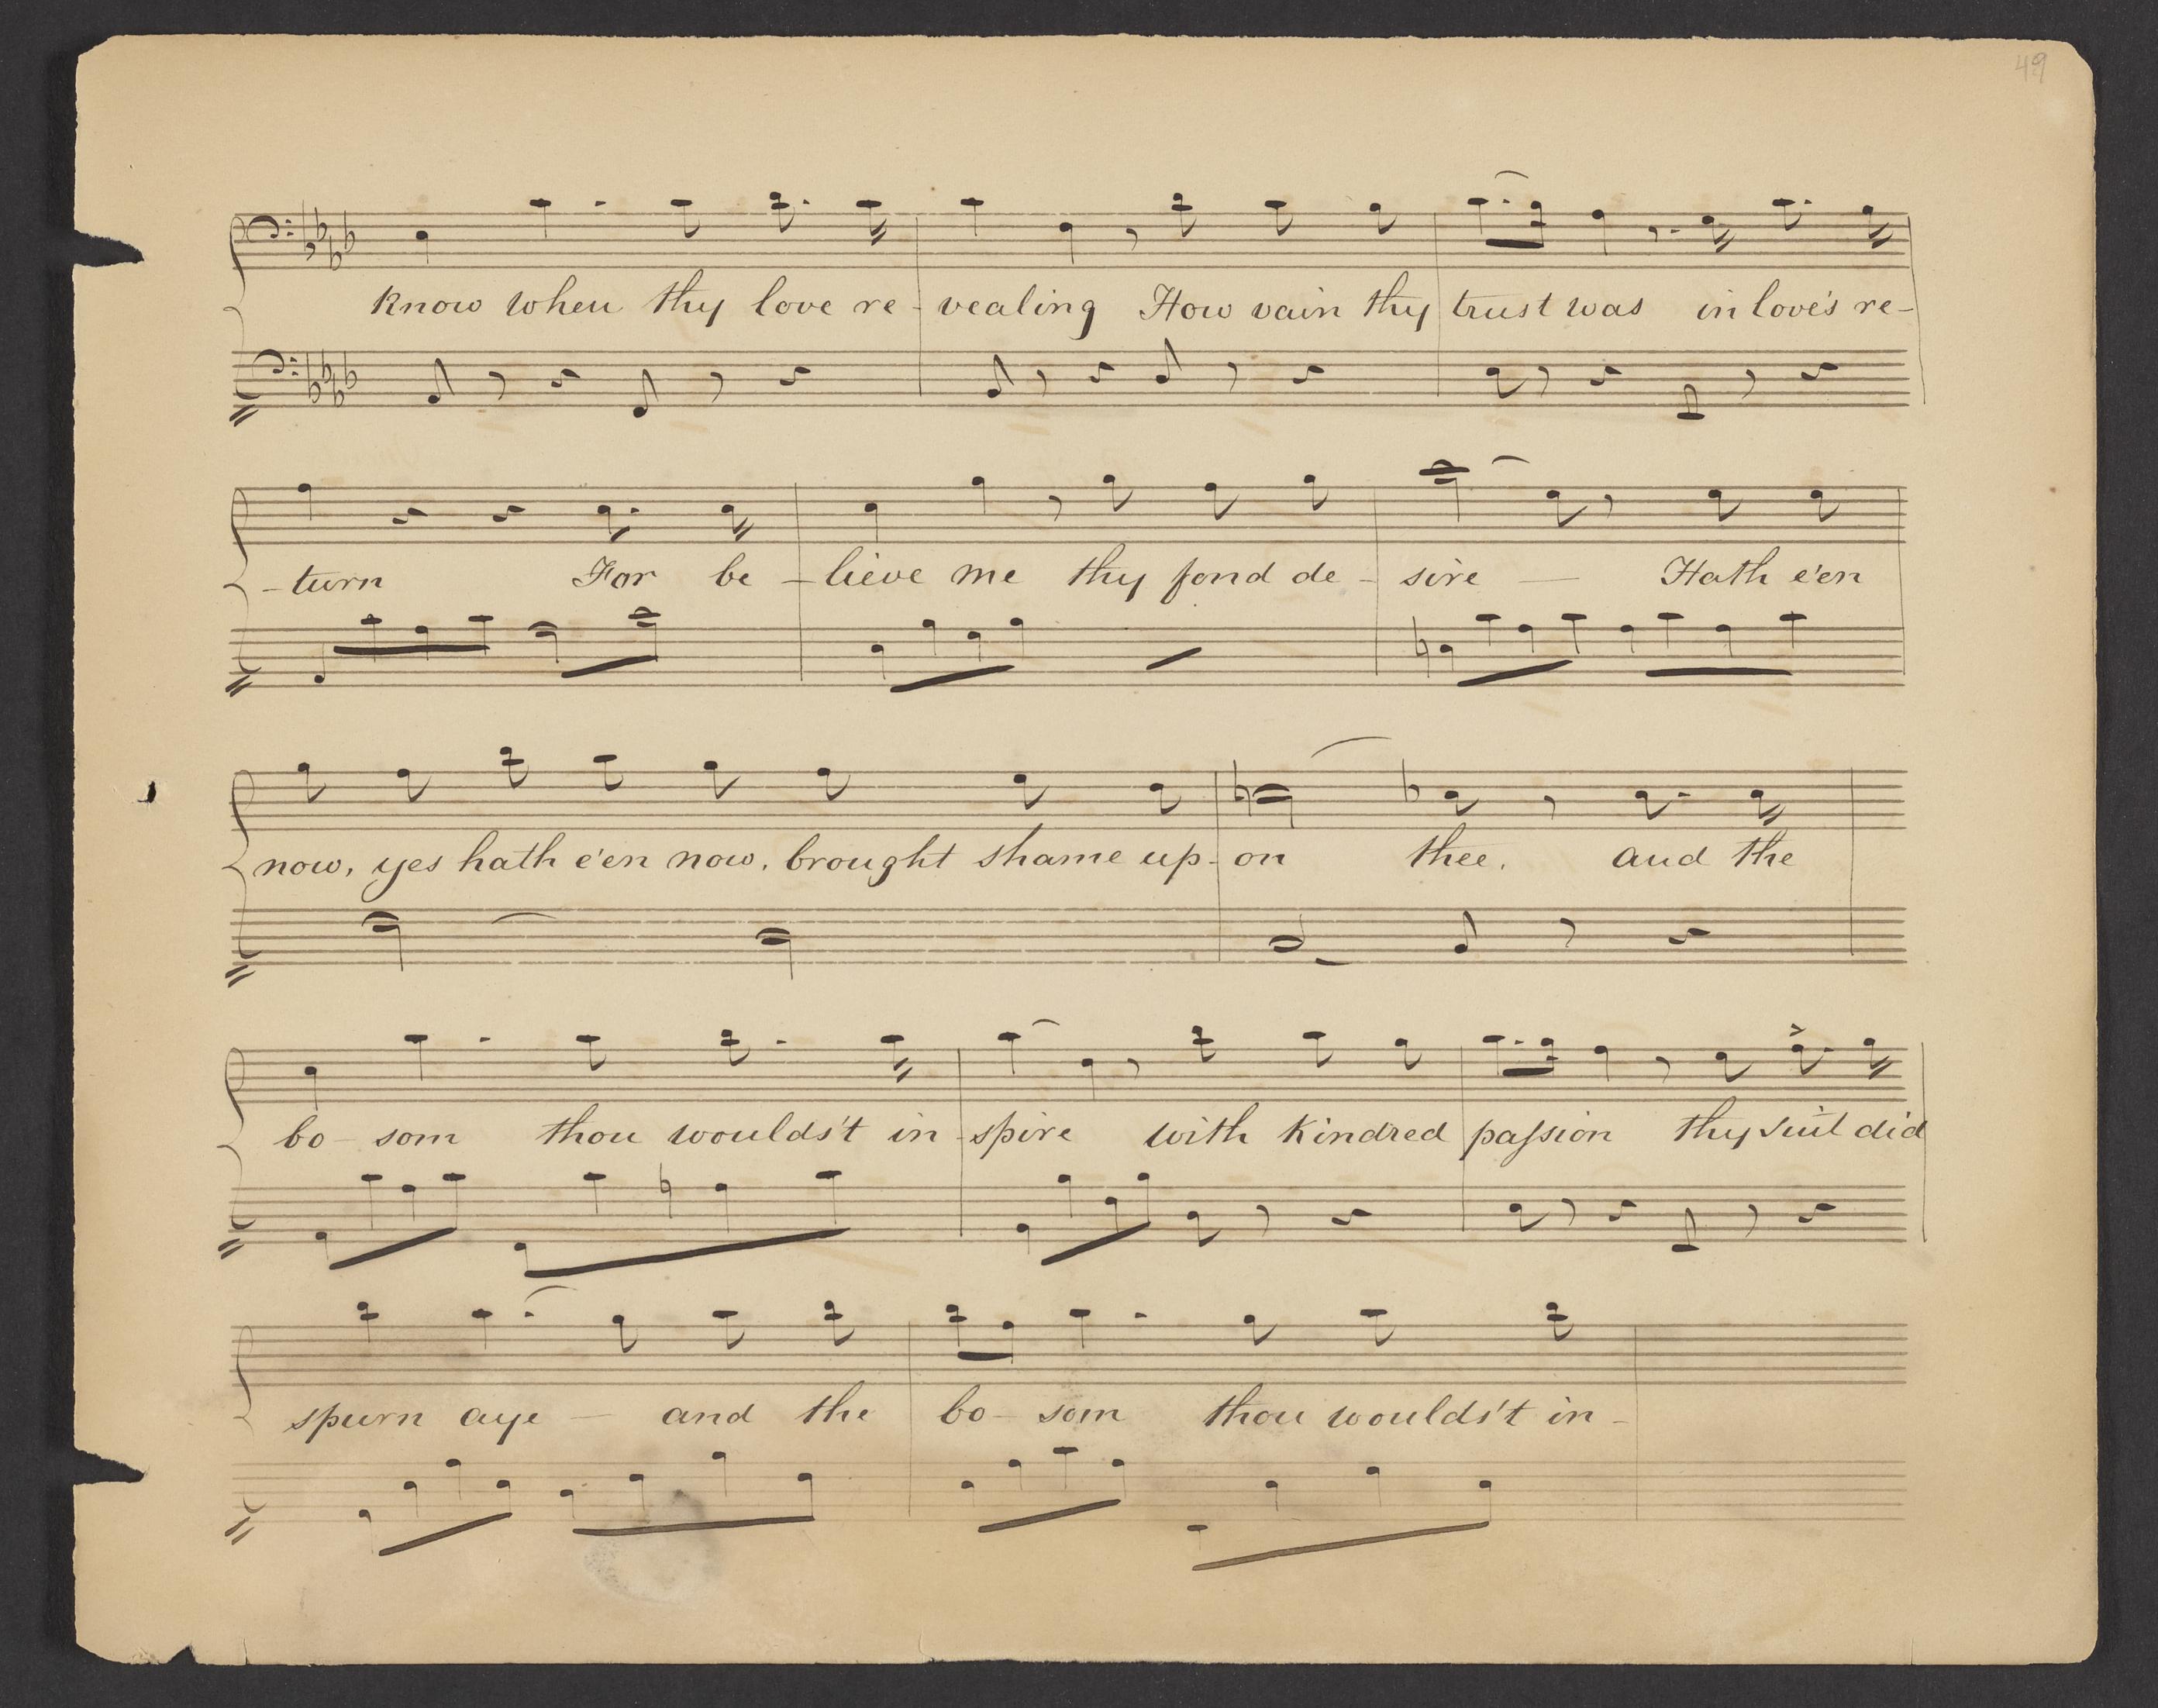 49
Know when thy love re - vealing How vain thy trust was in love's re -
- turn For be - lieve me thy fond de - sire — Hath e'en
now, yes hath e'en now, brought shame up - on thee. and the
bo - som thou would's't in - spire with Kindred paſsion thy suit did
spurn aye — and the bo - som thou would's't in -